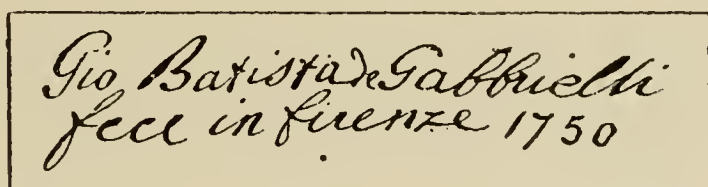 Gio Batista de Gabbrielli
fece in firenze 1750